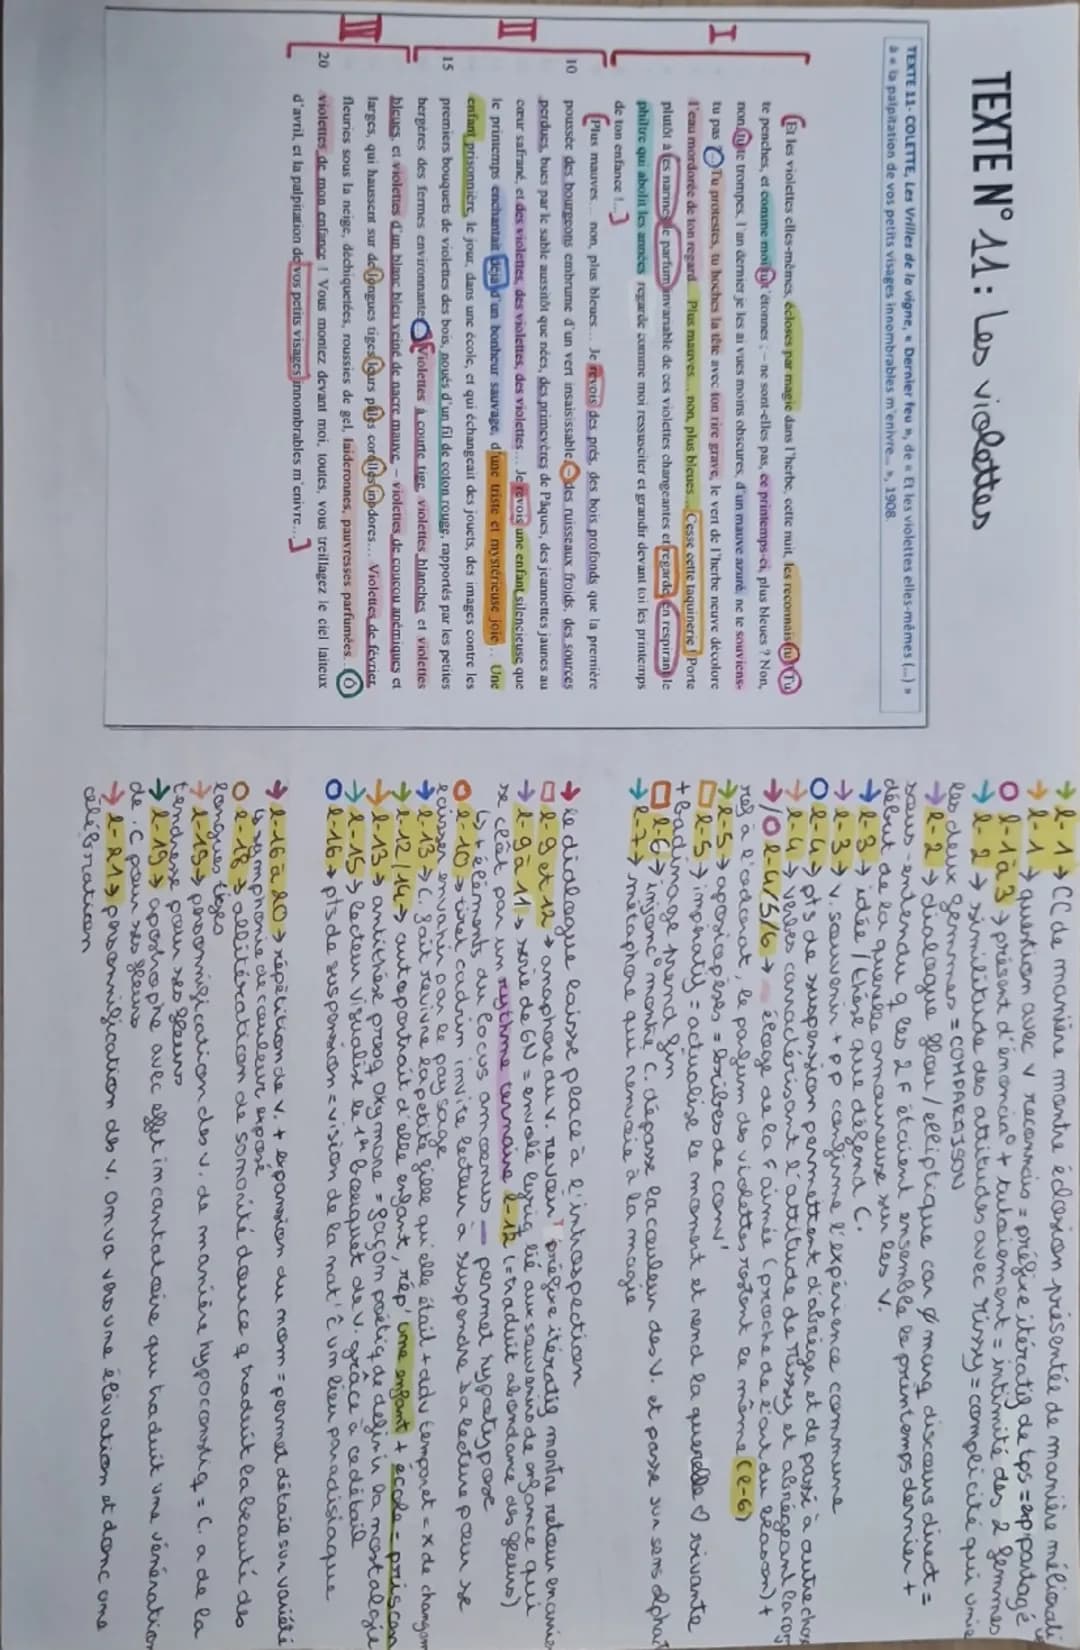 TEXTE N° 11 : Les violettes
TEXTE 11- COLETTE, Les Vrilles de la vigne, « Dernier feu », de « Et les violettes elles-mêmes (...) »
à « la palpitation de vos petits visages innombrables m'enivre... », 1908.
I
Et les violettes elles-mêmes, écloses par magie dans l'herbe, cette nuit, les reconnais-tu ? Tu
te penches, et comme moi tu t'étonnes ; – ne sont-elles pas, ce printemps-ci, plus bleues ? Non,
non, tu te trompes, l'an dernier je les ai vues moins obscures, d'un mauve azuré, ne te souviens-
tu pas ?... Tu protestes, tu hoches la tête avec ton rire grave, le vert de l'herbe neuve décolore
l'eau mordorée de ton regard... Plus mauves... non, plus bleues... Cesse cette taquinerie ! Porte
plutôt à tes narines le parfum invariable de ces violettes changeantes et regarde, en respirant le
philtre qui abolit les années, regarde comme moi ressusciter et grandir devant toi les printemps
de ton enfance !...
II
Plus mauves... non, plus bleues... Je revois des prés, des bois profonds que la première
10 poussée des bourgeons embrume d'un vert insaisissable – des ruisseaux froids, des sources
perdues, bues par le sable aussitôt que nées, des primevères de Pâques, des jeannettes jaunes au
cœur safrané, et des violettes, des violettes, des violettes... Je revois une enfant silencieuse que
le printemps enchantait déjà d'un bonheur sauvage, d'une triste et mystérieuse joie... Une
enfant prisonnière, le jour, dans une école, et qui échangeait des jouets, des images contre les
15 premiers bouquets de violettes des bois, noués d'un fil de coton rouge, rapportés par les petites
bergères des fermes environnantes...
III
Violettes à courte tige, violettes blanches et violettes
bleues, et violettes d'un blanc bleu veiné de nacre mauve – violettes de coucou anémiques et
larges, qui haussent sur de longues tiges leurs pâles corolles inodores... Violettes de février,
fleuries sous la neige, déchiquetées, roussies de gel, laideronnes, pauvresses parfumées... Ô
20 violettes de mon enfance ! Vous montez devant moi, toutes, vous treillagez le ciel laiteux
d'avril, et la palpitation de vos petits visages innombrables m'enivre...
→ l-1 → CC de manière montre éclosion présentée de manière méliorati
→ l-1 → question avec v reconnais = préfixe itératif de tps = exp partagé
l-1 à 3 → présent d'énonciaᵒ + tutoiement = intimité des 2 femmes
→ l-2 → similitude des attitudes avec Missy = complicité qui unie
les deux femmes = COMPARAISON
→ l-2 → dialogue flou / elliptique car ø marq discours direct =
sous-entendu q les 2 F étaient ensemble le printemps dernier +
début de la querelle amoureuse sur les V.
→ l-3 → idée / thèse que défend C.
→ l-3 → v. souvenir + pp confirme l'expérience commune
l-4 → pts de suspension permettent d'abréger et de passé à autre chose
→ l-4 → verbes caractérisant l'attitude de Missy et abrégeant la
→/O l-4/5/6 → éloge de la F aimée (proche de l'art du blason) +
ref à l'odorat, le parfum des violettes restent le même (l-6)
→ l-5 → aposiopèses = bribes de conv'
l-5 → impératif = actualise le moment et rend la querelle vivante
+ badinage prend fin
l-6 → injoncᵒ montre C. dépasse la couleur des V. et passe sur sens olphat
→ l-7 → métaphore qui renvoie à la magie
→ le dialogue laisse place à l'introspection
l-9 et 12 → anaphore du v. revoir, préfixe itératif montre retour en
→ l-9 à 11 → série de GN = envolé lyriq lié aux souvenirs de enfance qui
se clôt par un rythme ternaire l-12 (= traduit abondance des fleurs)
↳ + éléments du locus amoenus — permet hypotypose
l-10 → tiret cadratin invite lecteur a suspendre sa lecture pour se
laisser envahir par le paysage
→ l-13 → C. fait revivre la petite fille qu'elle était + adv temporel = x de
→ l-12/14 → autoportrait d'elle enfant, rép' une enfant + école = prison
→ l-13 → antithèse presq oxymore = façon poétiq de définir la nostalgie
→ l-15 → lecteur visualise le 1er bouquet de v. grâce à ce détail
l-16 → pts de suspension = vision de la nat' c̑ un lieu paradisiaque
→ l-16 à 20 → répétition de v. + expansion du nom = permet détails sur variété
↳ symphonie de couleur exposé
l-18 → allitération de sonorité douce q traduit la beauté des
longues tiges
→ l-19 → personnification des v. de manière hypocoristiq = C. a de la
tendresse pour ses fleurs
→ l-19 → apostrophe avec effet incantatoire qui traduit une vénération
de C pour ses fleurs
→ l-21 → personnification des v. On va vers une élévation et donc une
célébration